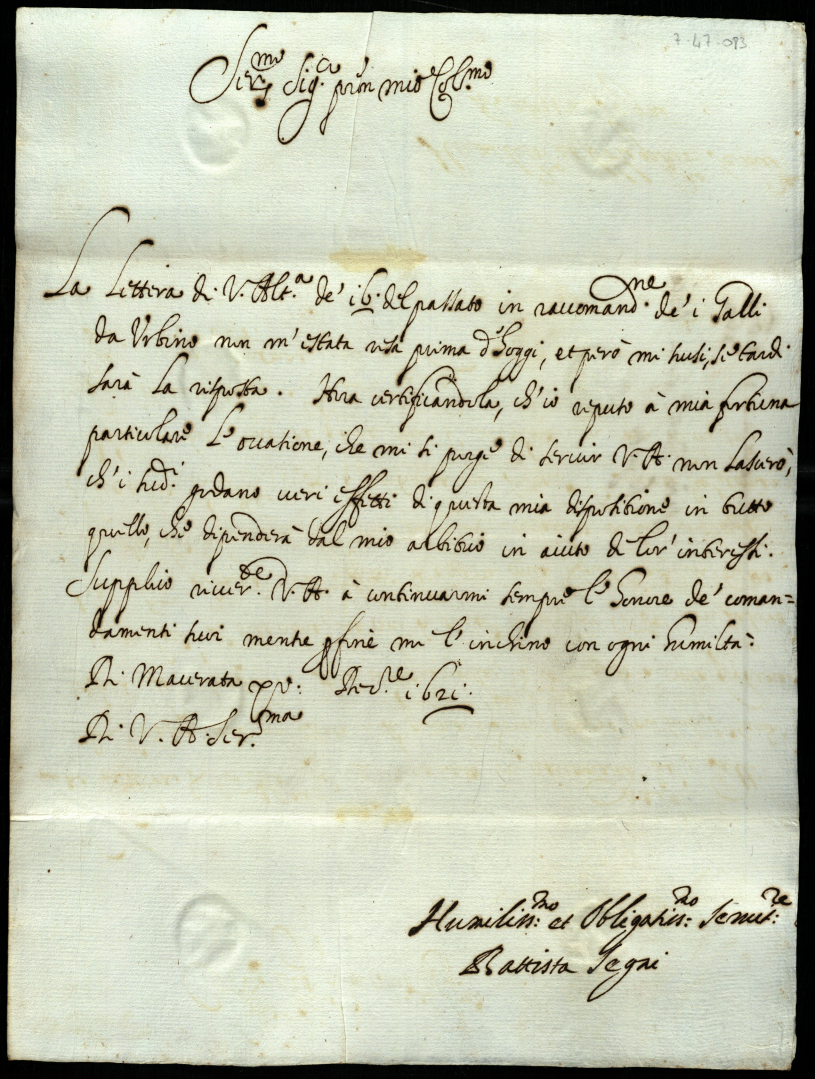 7-47-093
Ser.mo Sig.r pron mio Col.mo
La Lettera di V. Alt.a de' 16. del passato in raccomand.ne de' i Galli
da Urbino non m'è stata resa prima d'hoggi, et però mi scusi, se tardi
sarà la risposta. Hora certificandola, ch'io reputo à mia fortuna
particolare l'occatione, che mi si porge di servir V. A. non lascerò,
ch'i sud.i godano veri effetti di questa mia dispositione in tutto
quello, che dipenderà dal mio arbitrio in aiuto de lor' interessi.
Supplico river.te V. A. à continuarmi sempre l'honore de' coman=
damenti suoi mentre p fine me l'inchino con ogni humiltà:
Di Macerata xv: Dec.re 1621.
Di V. A. Ser.ma
Humiliss:mo et Obligatiss:mo Servit:re
Battista Segni